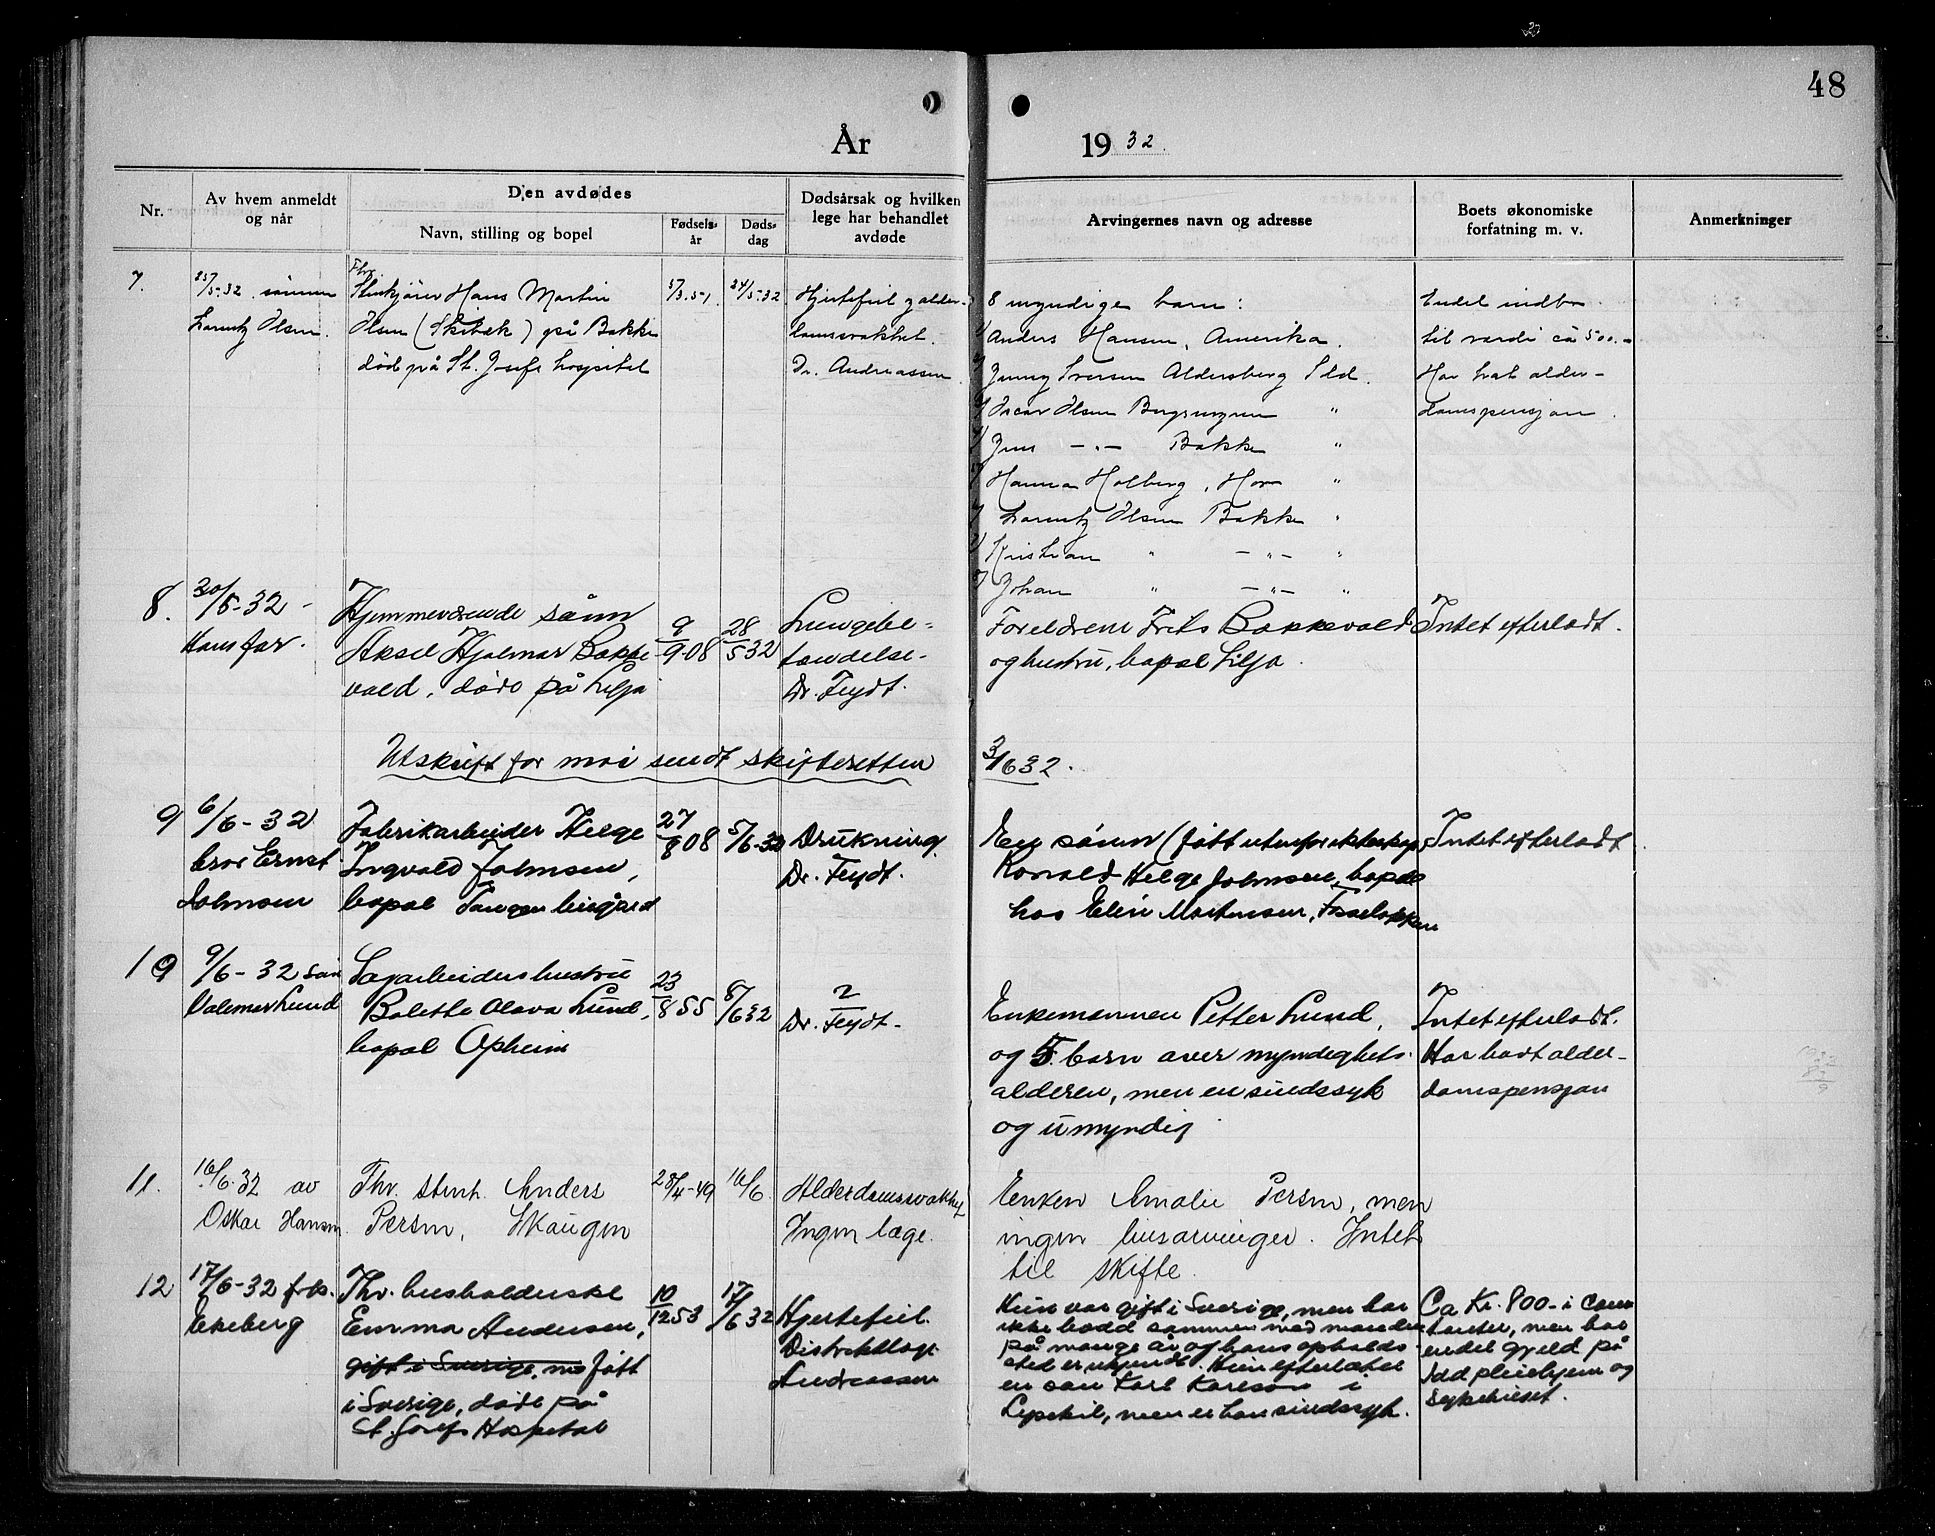 48
År 1932.
Nr.
Av hvem anmeldt og når
Den avdødes
Navn, stilling og bopel
Fødsels- år
Døds- dag
Dødsårsak og hvilken lege har behandlet avdøde
Arvingernes navn og adresse
Boets økonomiske forfatning m. v.
Anmerkninger
7.
25/5-32 sønnen
Lorentz Olsen.
Fhv.
Stenkjører Hans Martin
Olsen (Skibæk) på Bakke
død på St. Josefs hospital
5/3.51
24/5-32
Hjertefeil g alder-
domssvakhet.
Dr. Andreassen.
8 myndige barn:
1) Anders Hansen, Amerika.
2) Jenny Iversen Aldersberg Idd.
3) Oscar Olsen "
4) Jens -"- Bakke "
5) Hanna Holberg, Hov "
6) Lorentz Olsen Bakke "
7) Kristian " -"- "
8) Johan " -"- "
Endel indbo
til verdi ca 500.-
Har hat alder-
domspensjon.
8.
30/5-32 -
Hans far.
Hjemmeværende sønn
Aksel Hjalmar Bakke
vold, døde på Lilja
9/9-08
28/5 32
Lungebe-
tændelse-
Dr. Feydt.
Foreldrene Frits Bakkevold
og hustru, bopæl Lilja.
Intet efterladt.
Utskrift for mai sendt skifteretten
3/6 32.
9
6/6-32
bror Ernst
Johnsen
Fabrikarbeider Helge
Ingvald Johnsen,
bopæl Tangen
27/8 08
5/6-32
Drukning.
Dr. Feydt.
En sønn (født utenfor ekteskap)
Ronald Helge Johnsen, bopæl
hos Elin Martensen, Fosseløkken
Intet efterladt
10
9/6-32 søn
Valemar Lund
Sagarbeiders hustru
Bolette Olava Lund,
bopæl Opheim
23/8 55
8/6 32
?
Dr. Feydt-
Enkemannen Petter Lund,
og 5 barn over myndighets-
alderen, men en sindssyk
og umyndig
Intet efterladt.
Har hadt alder-
domspensjon
11.
16/6.32 av
Oskar Hansen
Fhv. stenh. Anders
Persen, Skaugen
28/4-49
16/6.
Alderdomssvakhet
Ingen læge.
Enken Amalie Persen, men
ingen livsarvinger. Intet
til skifte.
12
17/6-32 frk.
Ekeberg
Fhv. husholderske
Emma Andersen,
gift i Sverige, ms født
i Sverige, døde på
St. Josefs Hospital
10/12 53
17/6 32
Hjertefeil.
Distriktlæge
Andreassen
Hun var gift i Sverige, men har
ikke bodd sammen med manden
på mange år og hans opholds-
sted er ukjendt. Hun efterlater
en søn Karl Karlson i
Lysekil, men er han sindssyk.
Ca Kr. 800- i kon-
tanter, men har
endel gjeld på
Idd pleiehjem og
sykehuset.